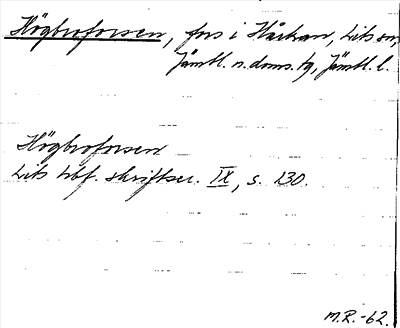 Högbroforsen, fors i Hårkan, Lits sn,
Jämtl. n. doms. tg, Jämtl. l.
Högbroforsen
Lits hbf. skriftser. IX, s. 130.
M.R.-62.